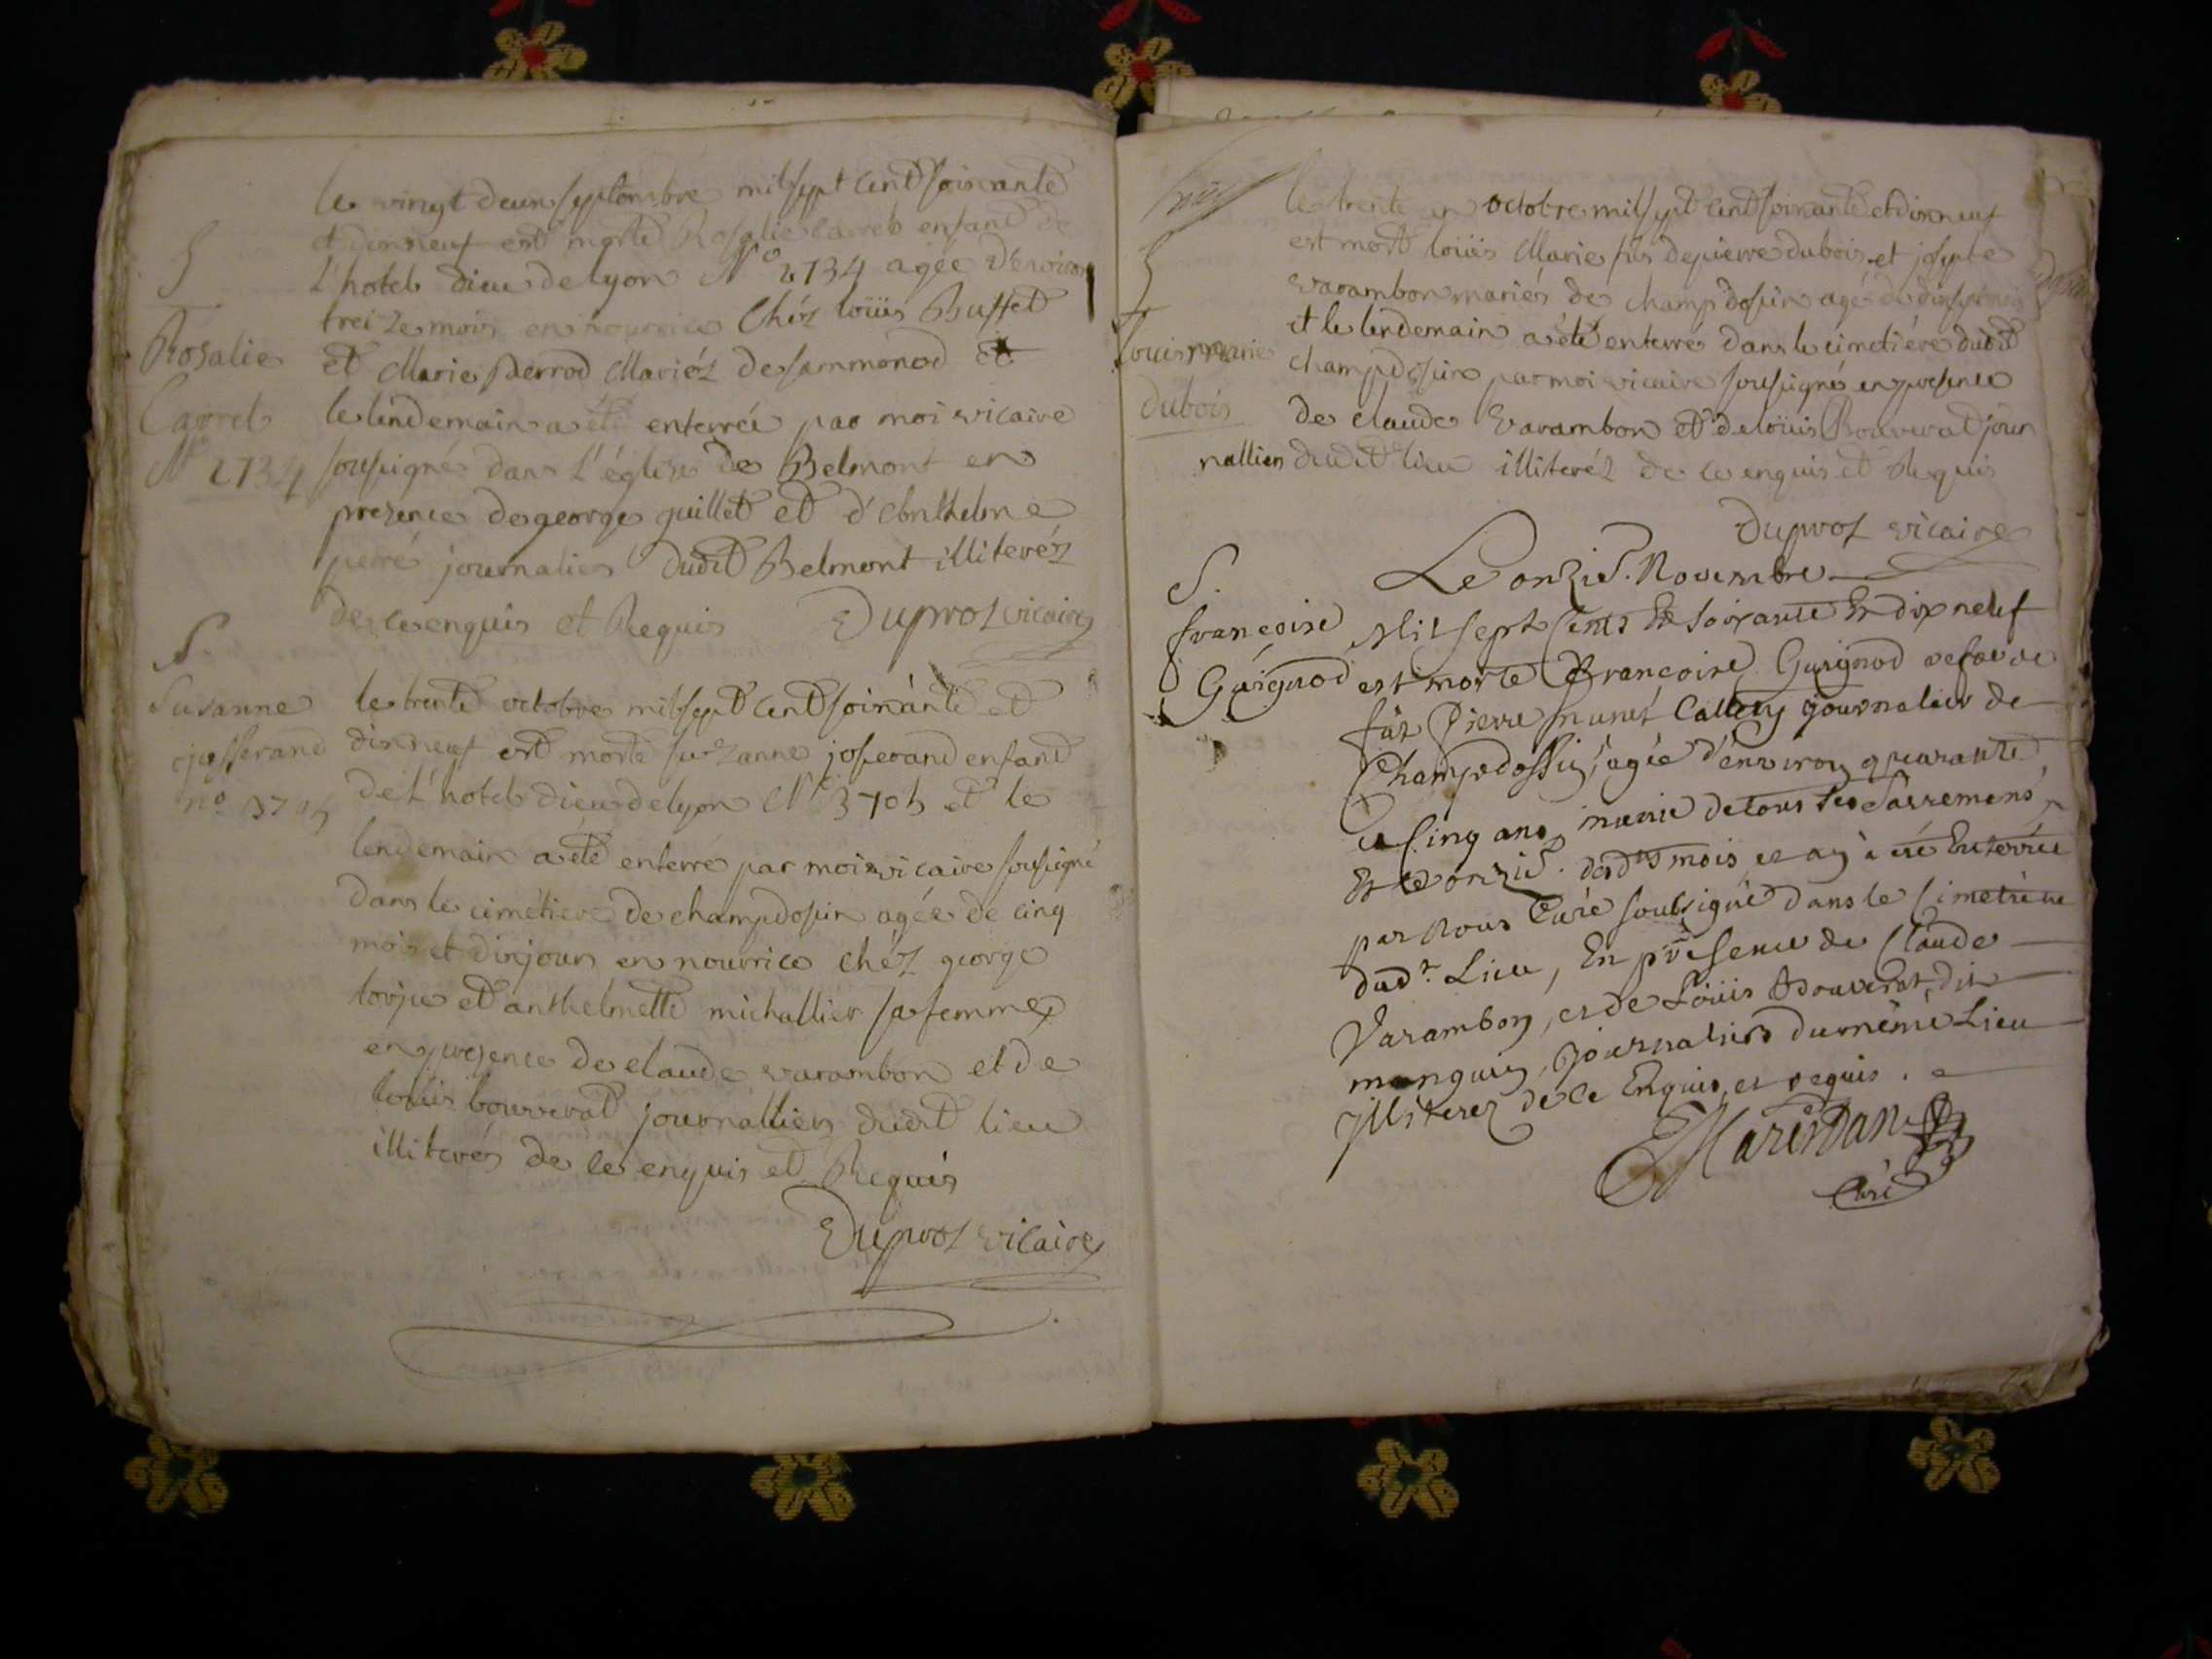 le vingt deux septembre mil sept cent soixante
et dixneuf est morte Rosalie Carret enfant de
L'hotel dieu de lyon N° 2734 agée d'environ
treize mois en nourrice Chéz loüis Buffet
et Marie perrod Mariéz de sammonod et
le lendemain a été enterrée par moi vicaire
sousigné dans L'église de Belmont en
prezence de george guillet et d'Anthelme
perré journalier dudit Belmont illiteréz
de ce enquis et Requis Duproz vicaire
S
Rosalie
Carret
N° 2734
S
Susanne
josserand
n° 3705
le trente octobre mil sept cent soixante et
dixneuf est morte suzanne joserand enfant
de L'hotel dieu de lyon N° 3705 et le
lendemain a été enterré par moi vicaire sousigné
dans le cimétiere de champdosin agée de cinq
mois et dix jours en nourrice chéz george
et anthelmette michallier sa femme
en prezence de claude varambon et de
loüis bouverat journallier dudit lieu
illiterés de ce enquis et Requis
Duproz vicaire
S
Louis marie
dubois
le trente un octobre mil sept cent soixante et dixneuf
est mort loüis Marie fils de pierre dubois et josepte
varambon mariés de champdosin agé de
et le lendemain a été enterré dans le cimetiére dudit
champdosin par moi vicaire sousigné en presence
de claude varambon et de loüis Bouverat jour
nallier dudit lieu illiteréz de ce enquis et Requis
Duproz vicaire
S.
françoise
Guignod
Le onzie. Novembre
Mil sept Cents Et soixante Et dix neuf
est morte Françoise Guignod vefve de
füt Pierre Callety journalier de
Champdossin, agée d'environ quarante
Cinq ans, munie de tous ses Sacremens,
Et le onzie. desdts mois et an, a été Enterrée
par Nous Curé soubsigné dans le Cimetiére
dudt. Lieu, En présence de Claude
Varambon, et de Loüis Bouverat, dit
manguin, journaliers du même Lieu
Illiterez de ce Enquis, et requis.
Marindan
Curé